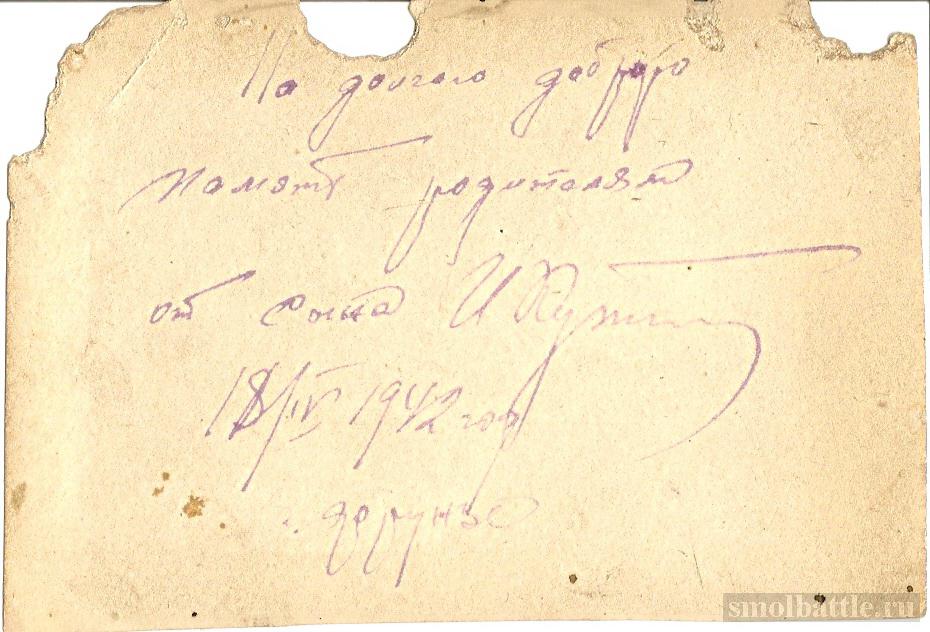 На долгою добрую
память родителям
от сына И
18/IV 1942 год
smolbattle.ru